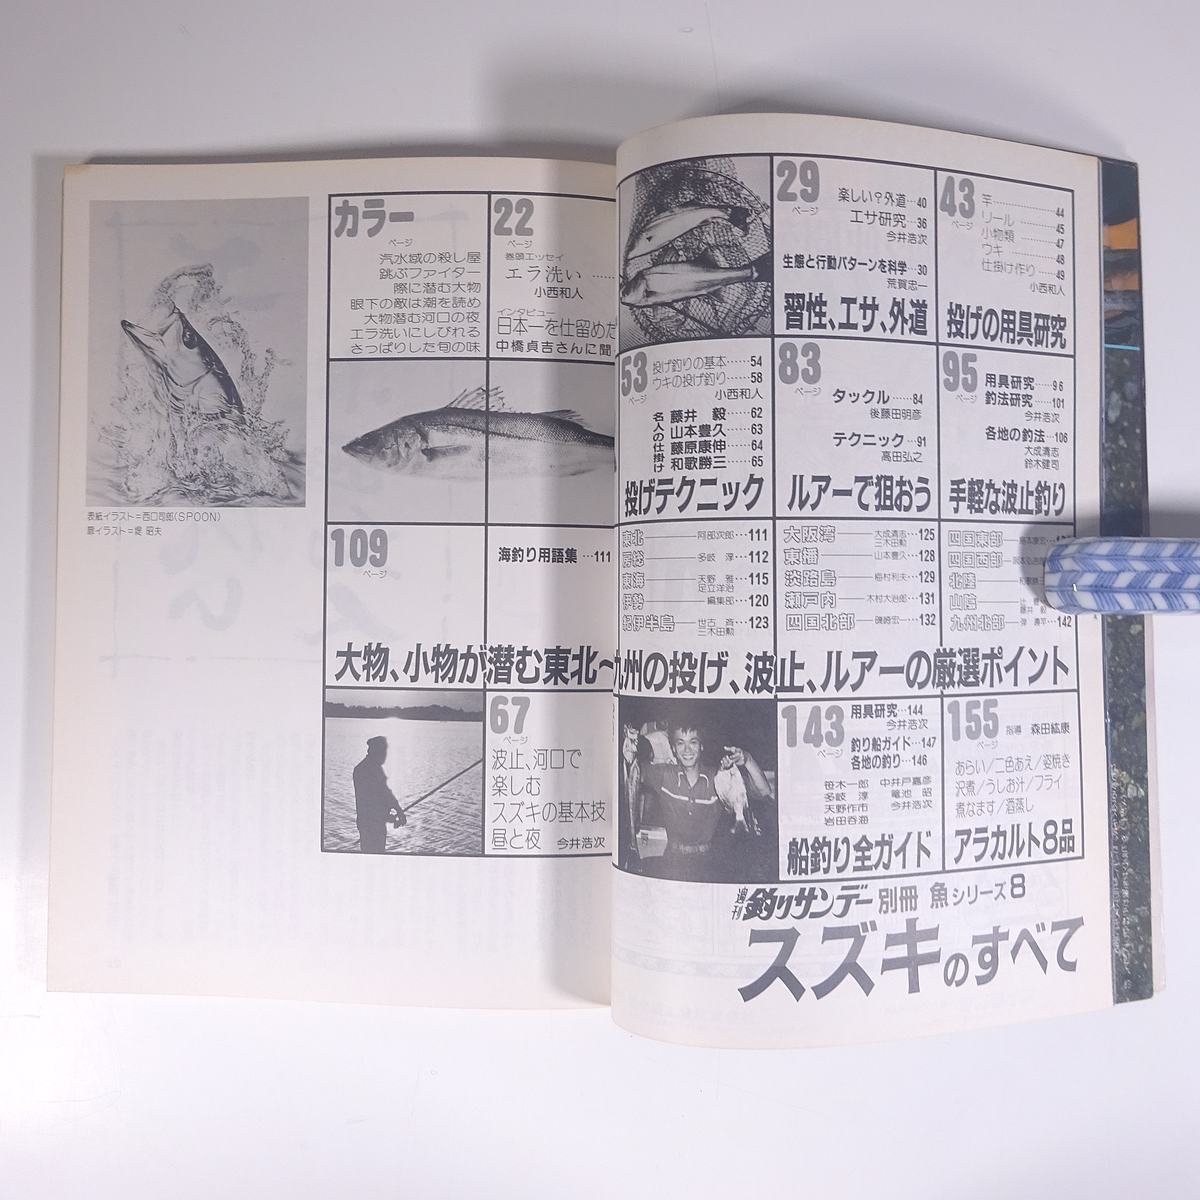 表紙イラスト=西口司郎(SPOON)
扉イラスト=堤 昭夫
カラー
ページ
汽水域の殺し屋
跳ぶファイター
際に潜む大物
眼下の敵は潮を読め
大物潜む河口の夜
エラ洗いにしびれる
さっぱりした旬の味
22
ページ
巻頭エッセイ
エラ洗い……
小西和人
インタビュー
日本一を仕留めた
中橋貞吉さんに聞
29
ページ
楽しい?外道…40
エサ研究…36
今井浩次
生態と行動パターンを科学…30
荒賀忠一
習性、エサ、外道
43
ページ
竿………44
リール………45
小物類………47
ウキ………48
仕掛け作り…49
小西和人
投げの用具研究
53
ページ
投げ釣りの基本……54
ウキの投げ釣り……58
小西和人
名人の仕掛け
藤井 毅……62
山本豊久……63
藤原康伸……64
和歌勝三……65
投げテクニック
83
ページ
タックル……84
後藤田明彦
テクニック…91
高田弘之
ルアーで狙おう
95
ページ
用具研究……96
釣法研究……101
今井浩次
各地の釣法…106
大成清志
鈴木健司
手軽な波止釣り
109
ページ
海釣り用語集…111
東北——阿部次郎…111
房総——多岐 淳…112
東海——天野 雅
足立洋治…115
伊勢——編集部…120
紀伊半島——世古 斉
三木田勲…123
大阪湾——大成清志
三木田勲…125
東播——山本豊久…128
淡路島——植村利夫…129
瀬戸内——木村大治郎…131
四国北部——磯崎宏…132
四国東部
四国西部
北陸
山陰
九州北部…142
大物、小物が潜む東北〜九州の投げ、波止、ルアーの厳選ポイント
67
ページ
波止、河口で
楽しむ
スズキの基本技
昼と夜 今井浩次
143
ページ
用具研究…144
今井浩次
釣り船ガイド…147
各地の釣り…146
笹木一郎 中井戸嘉彦
多岐 淳 竜池 昭
天野作市 今井浩次
岩田呑海
船釣り全ガイド
155
ページ
指導 森田紘康
あらい/二色あえ/姿焼き
沢煮/うしお汁/フライ
煮なます/酒蒸し
アラカルト8品
週刊釣りサンデー別冊 魚シリーズ8
スズキのすべて